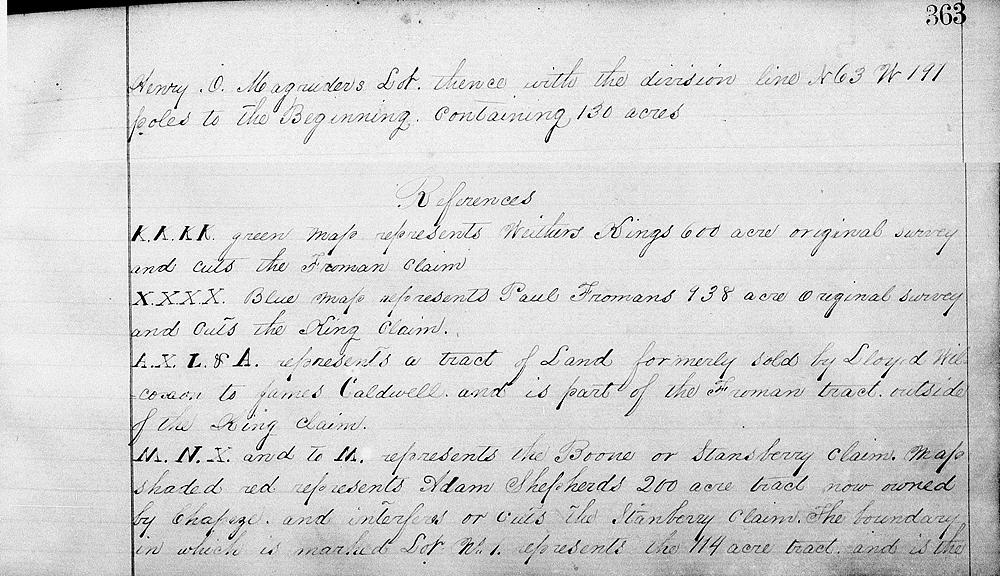 363
Henry O. Magruders Lot. thence with the division line N 63 W 191
poles to the Beginning. Containing 130 acres
References
K.K.KK. green map represents Weithers Kings 600 acre original survey
and cuts the Froman Claim
X.X.X.X. Blue map represents Paul Fromans 938 acre original survey
and cuts the King Claim.
A.X L. & A. represents a tract of Land formerly sold by Lloyd Wil
-coxon to James Caldwell. and is part of the Froman tract. outside
of the King Claim.
M. N. X. and to M. represents the Boone or Stansberry Claim. Map
shaded red represents Adam Shepherds 200 acre tract now owned
by Chapeze. and interferes or cuts the Stanberry Claim. The boundary
in which is marked Lot No. 1. represents the 114 acre tract. and is the